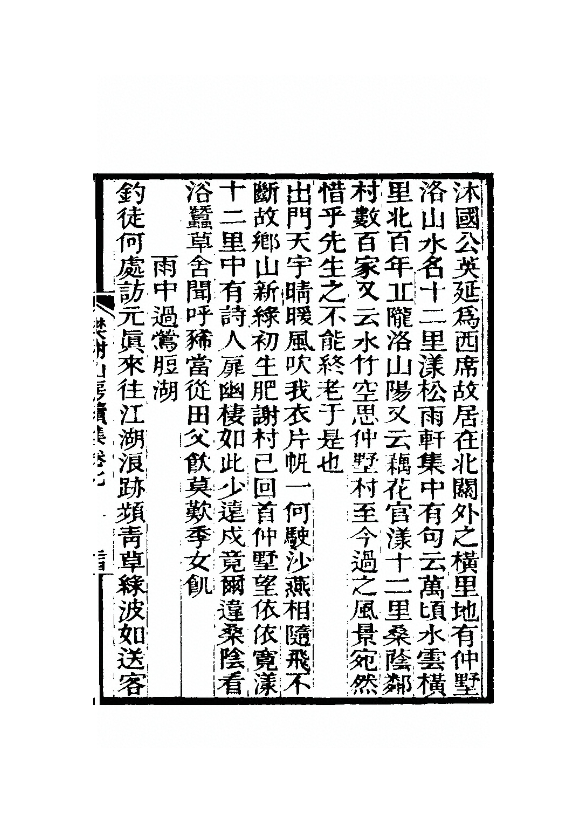 沐國公英延爲西席故居在北關外之橫里地有仲墅
洛山水名十二里漾松雨軒集中有句云萬頃水雲橫
里北百年丘隴洛山陽又云藕花官漾十二里桑陰鄰
村數百家又云水竹空思仲墅村至今過之風景宛然
惜乎先生之不能終老于是也
出門天宇晴暖風吹我衣片帆一何駛沙燕相隨飛不
斷故鄉山新綠初生肥謝村已回首仲墅望依依寛漾
十二里中有詩人扉幽棲如此少遠戍竟爾違桑陰看
浴蠶草舍聞呼豨當從田父飲莫歎季女飢
雨中過鶯脰湖
釣徒何處訪元眞來往江湖浪跡頻靑草綠波如送客
樊榭山房續集卷七